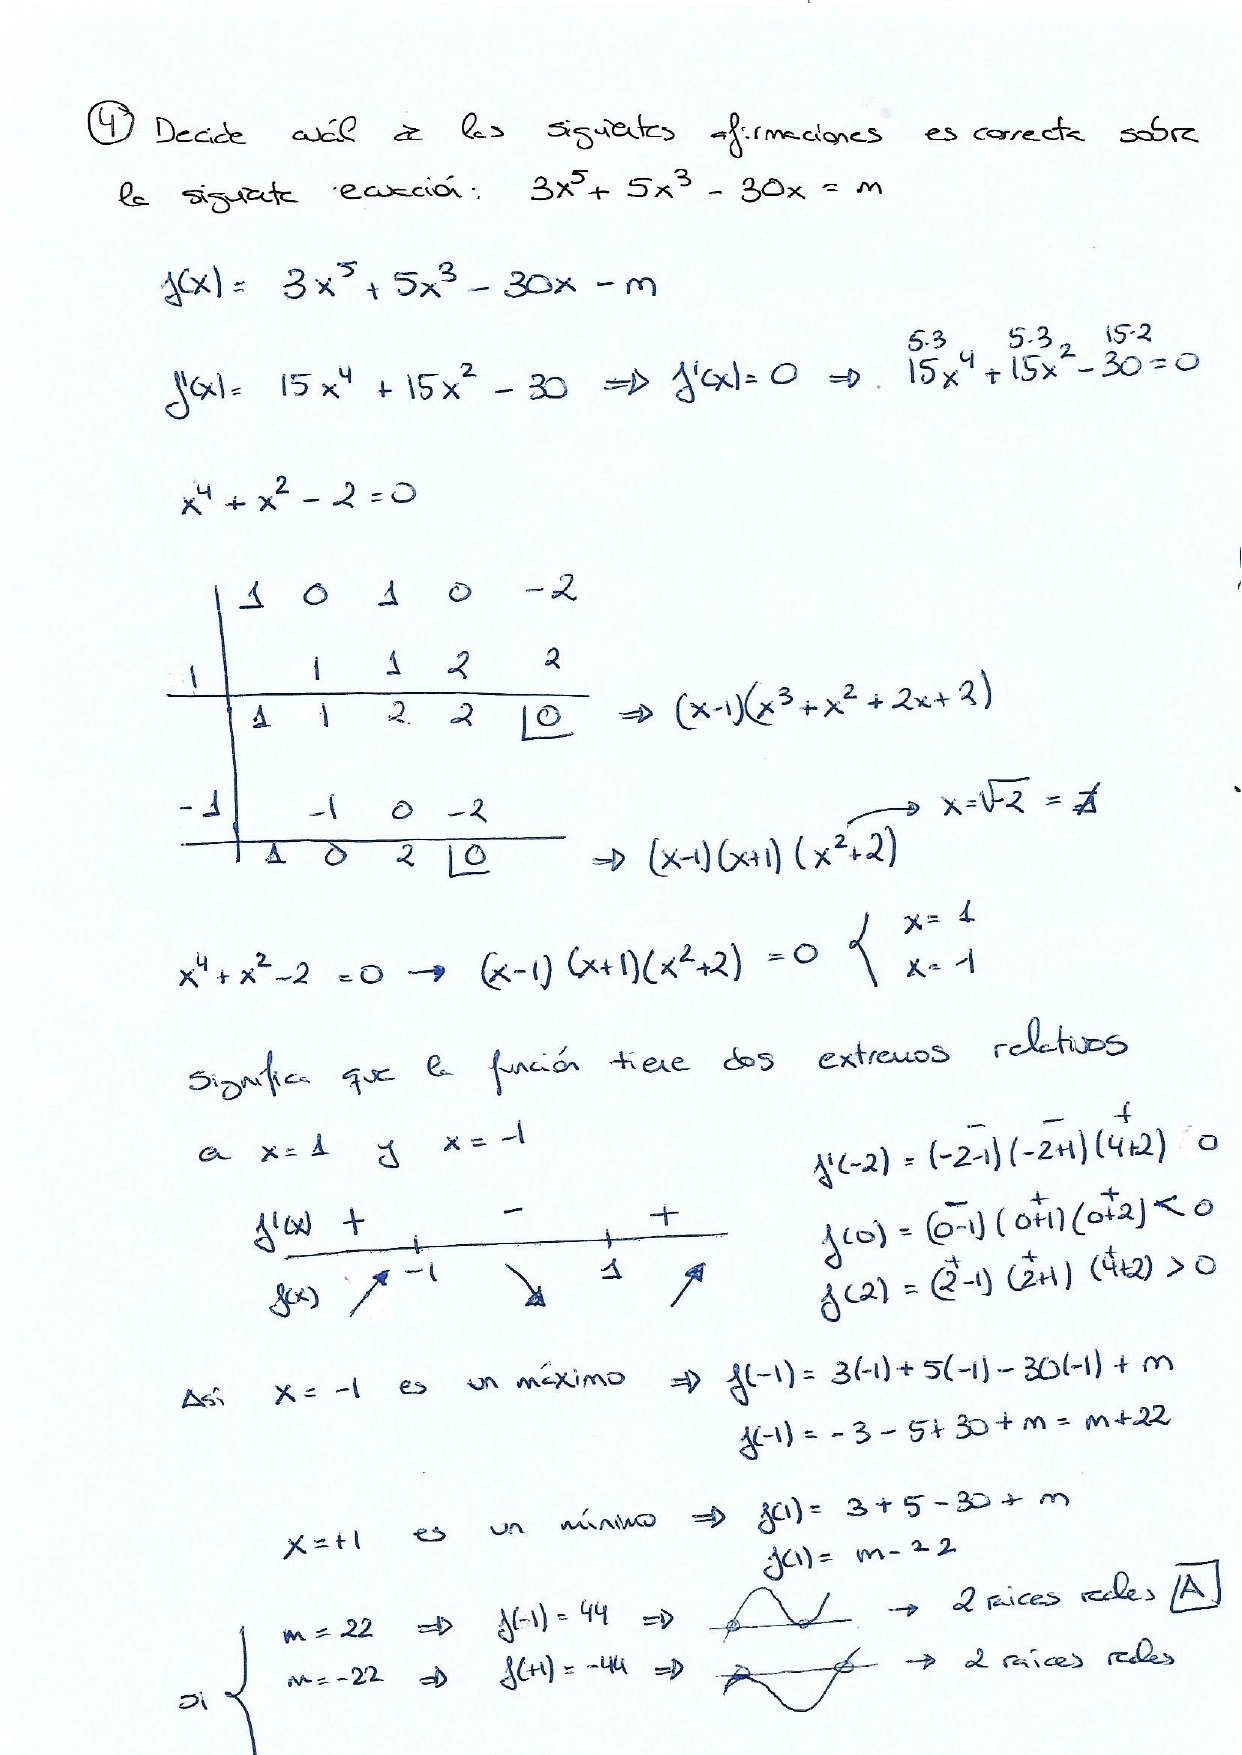 ④ Decide cuál de las siguientes afirmaciones es correcta sobre
la siguiente ecuación: 3x⁵ + 5x³ - 30x = m
f(x) = 3x⁵ + 5x³ - 30x - m
5·3 5·3 15·2
f'(x) = 15x⁴ + 15x² - 30 ⇒ f'(x) = 0 ⇒ 15x⁴ + 15x² - 30 = 0
x⁴ + x² - 2 = 0
1 0 1 0 -2
1 1 1 2 2
1 1 2 2 0 ⇒ (x-1)(x³ + x² + 2x + 2)
-1 -1 0 -2 → x = √-2 = ∄
1 0 2 0 ⇒ (x-1)(x+1)(x²+2)
x⁴ + x² - 2 = 0 → (x-1)(x+1)(x²+2) = 0 { x = 1
x = -1
Significa que la función tiene dos extremos relativos
a x = 1 y x = -1
- - +
f'(-2) = (-2-1)(-2+1)(4+2) 0
f'(x) + - +
- + +
f(0) = (0-1)(0+1)(0+2) < 0
-1 1
f(x) ↗ ↘ ↗
+ + +
f(2) = (2-1)(2+1)(4+2) > 0
Así x = -1 es un máximo ⇒ f(-1) = 3(-1) + 5(-1) - 30(-1) + m
f(-1) = -3 - 5 + 30 + m = m + 22
x = +1 es un mínimo ⇒ f(1) = 3 + 5 - 30 + m
f(1) = m - 22
m = 22 ⇒ f(-1) = 44 ⇒ → 2 raices reales A
si { m = -22 ⇒ f(+1) = -44 ⇒ → 2 raices reales